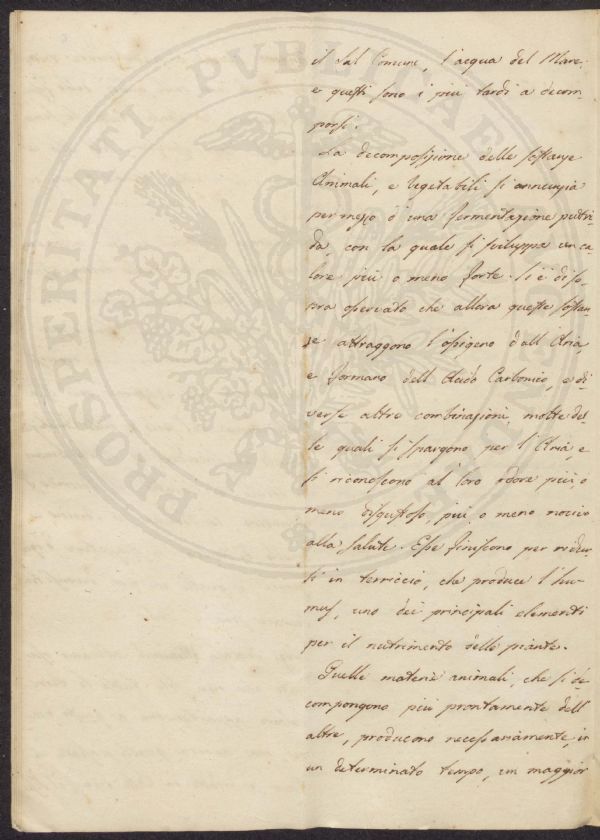 il Sal Comune, l'acqua del Mare;
e questi sono i più tardi a decom-
porsi.
La decomposizione delle sostanze
Animali, e Vegetabili si annunzia
per mezzo d'una fermentazione putri-
da, con la quale si sviluppa un ca-
lore più o meno forte. Si è di so-
pra osservato che allora queste sostan-
ze attraggono l'ossigeno dall'Aria,
e formano dell'Acido Carbonico, e di-
verse altre combinazioni, molte del-
le quali si spargono per l'Aria, e
si riconoscono al loro odore più, o
meno disgustoso, più, o meno nocivo
alla salute. Esse finiscono per ridur-
si in terriccio, che produce l'hu-
mus, uno dei principali elementi
per il nutrimento delle piante.
Quelle materie animali, che si de-
compongono più prontamente dell'
altre, producono necessariamente, in
un determinato tempo, un maggior
PROSPERITATI PUBLICAE